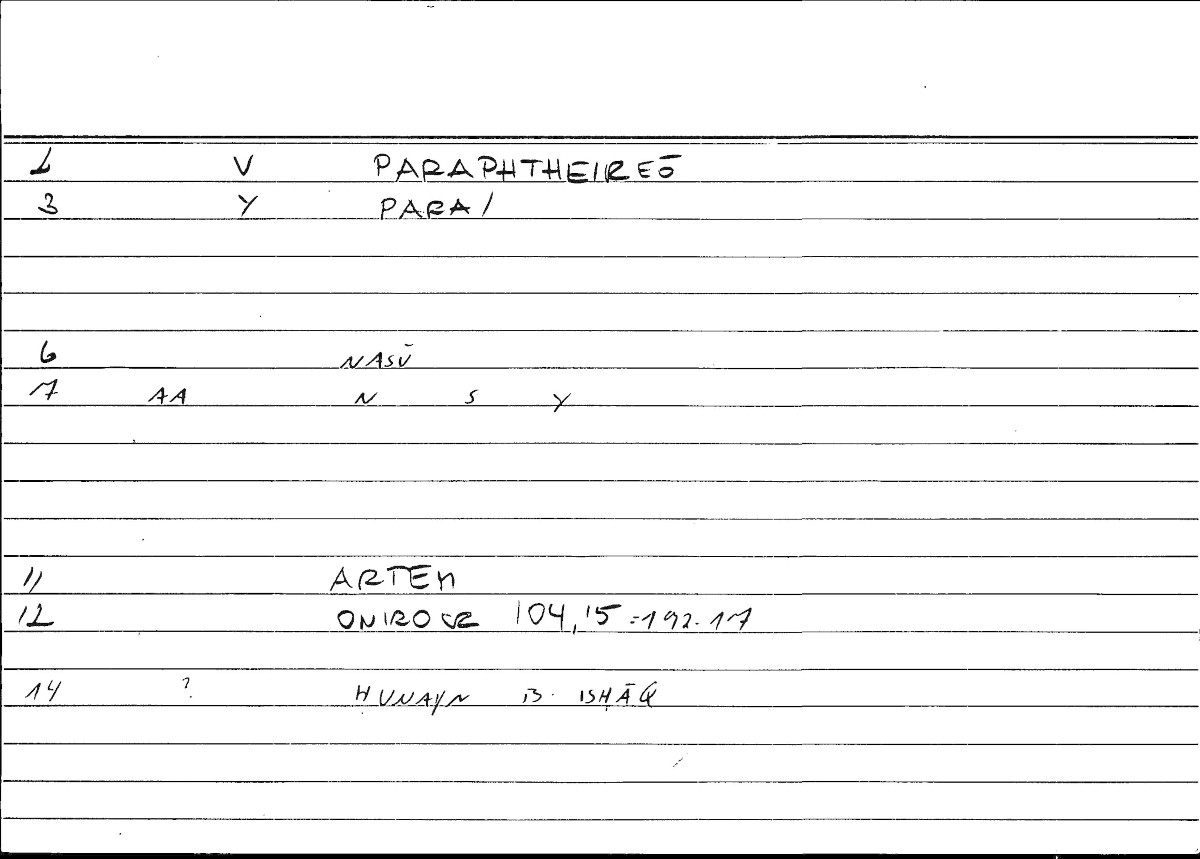 1 V PARAPHTHEIREŌ
3 Y PARA/
6 NASŪ
7 AA N S Y
11 ARTEM
12 ONIROCR 104,15=192.17
14 ? ḤUNAYN B. ISḤĀQ